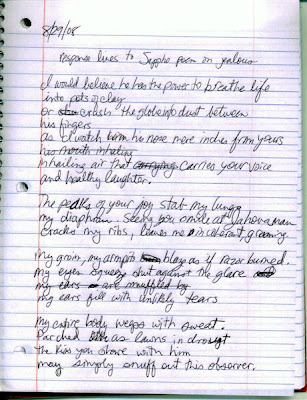 8/29/08
response lines to Sappho poem on jealousy
I would believe he has the power to breathe life
into pots of clay
or crush the globe into dust between
his fingers
as I watch him his nose mere inches from yours
his mouth inhaling
inhaling air that carrying carries your voice
and healthy laughter.
The peaks of your joy stab my lungs
my diaphram. Seeing you smile at a man
cracks my ribs, leaves me incoherent, groaning
My groin, my armpits blaze as if razor burned
my eyes squeeze shut against the glare
my ears are muffled by
my ears fill with unlikely tears
my entire body weeps with sweat.
Parched as lawns in drought
the kiss you share with him
may simply snuff out this observer.